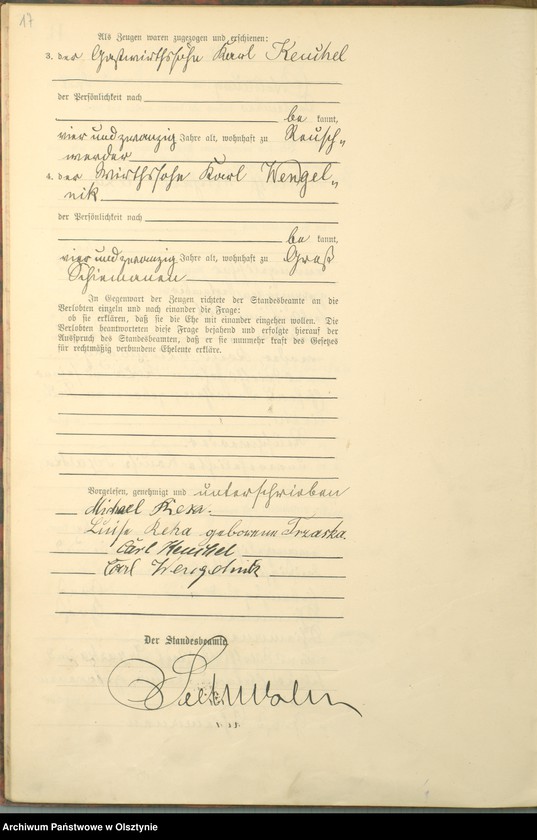 17
Als Zeugen waren zugezogen und erschienen:
3. der Gastwirthssohn Karl Keuchel
der Persönlichkeit nach
be kannt,
vier und zwanzig Jahre alt, wohnhaft zu Reusch„
werder
4. der Wirthssohn Karl Wengel„
nik
der Persönlichkeit nach
be kannt,
vier und zwanzig Jahre alt, wohnhaft zu Groß
Schiemanen
In Gegenwart der Zeugen richtete der Standesbeamte an die
Verlobten einzeln und nach einander die Frage:
ob sie erklären, daß sie die Ehe mit einander eingehen wollen. Die
Verlobten beantworteten diese Frage bejahend und erfolgte hierauf der
Ausspruch des Standesbeamten, daß er sie nunmehr kraft des Gesetzes
für rechtmäßig verbundene Eheleute erkläre.
Vorgelesen, genehmigt und unterschrieben
Michael Rexa.
Luise Rexa geborene Trzaska.
Carl Keuchel
Carl Wengelnik
Der Standesbeamte.
Archiwum Państwowe w Olsztynie